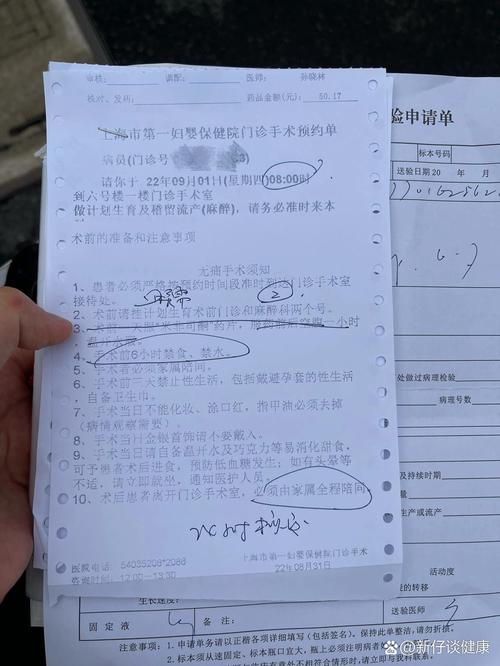 审核: 调配: 医师: 孙晓林
核对、发药: 药品金额(元): 50.17
上海市第一妇婴保健院门诊手术预约单
病员(门诊号 3)
请你于 22年09月01日(星期四)08:00时
到六号楼一楼门诊手术室
做计划生育及稽留流产(麻醉),请务必准时来本
术前的准备和注意事项
无痛手术须知
1、患者必须严格按预约时间段准时到达门诊手术室
接待处。
②
2、术前请挂计划生育术前门诊和麻醉科两个号。
3、术前一天服"米非司酮"药片,服药前后空腹一小时
温开水服。
4、手术前6小时禁食、禁水。
5、手术者必须家属陪同。
6、手术前三天禁止性生活,包括戴避孕套的性生活
,自备卫生巾。
7、手术当日不能化妆、涂口红,指甲油必须去掉
(病情观察需要)。
8、手术当日金银首饰请不要戴入。
9、手术当日请自备温开水及巧克力等易消化甜食,
可予患者术后进食,预防低血糖发生;如有头晕等
不适,请立即就坐,通知医护人员。
10、术后患者离开门诊手术室,必须由家属全程陪同。
医院电话: 54035206*2088
咨询时间: 12:00-13:30
上海市第一妇婴保健院门诊手术
22年08月31日
验申请单
标本号码:
送检日期20 年 月
处做过病理检验:
病理号数:
及持续时期
生产或流产
废的转移
生长速度:
送检医师:
固定液
备注:
注意事项: 1. 申请单务请以正楷各项详细填写(包括签名)。保持此单整洁,请勿折损。
2. 标本须从速固定、标本瓶口宜大,瓶上必须注明病人
@新仔谈健康